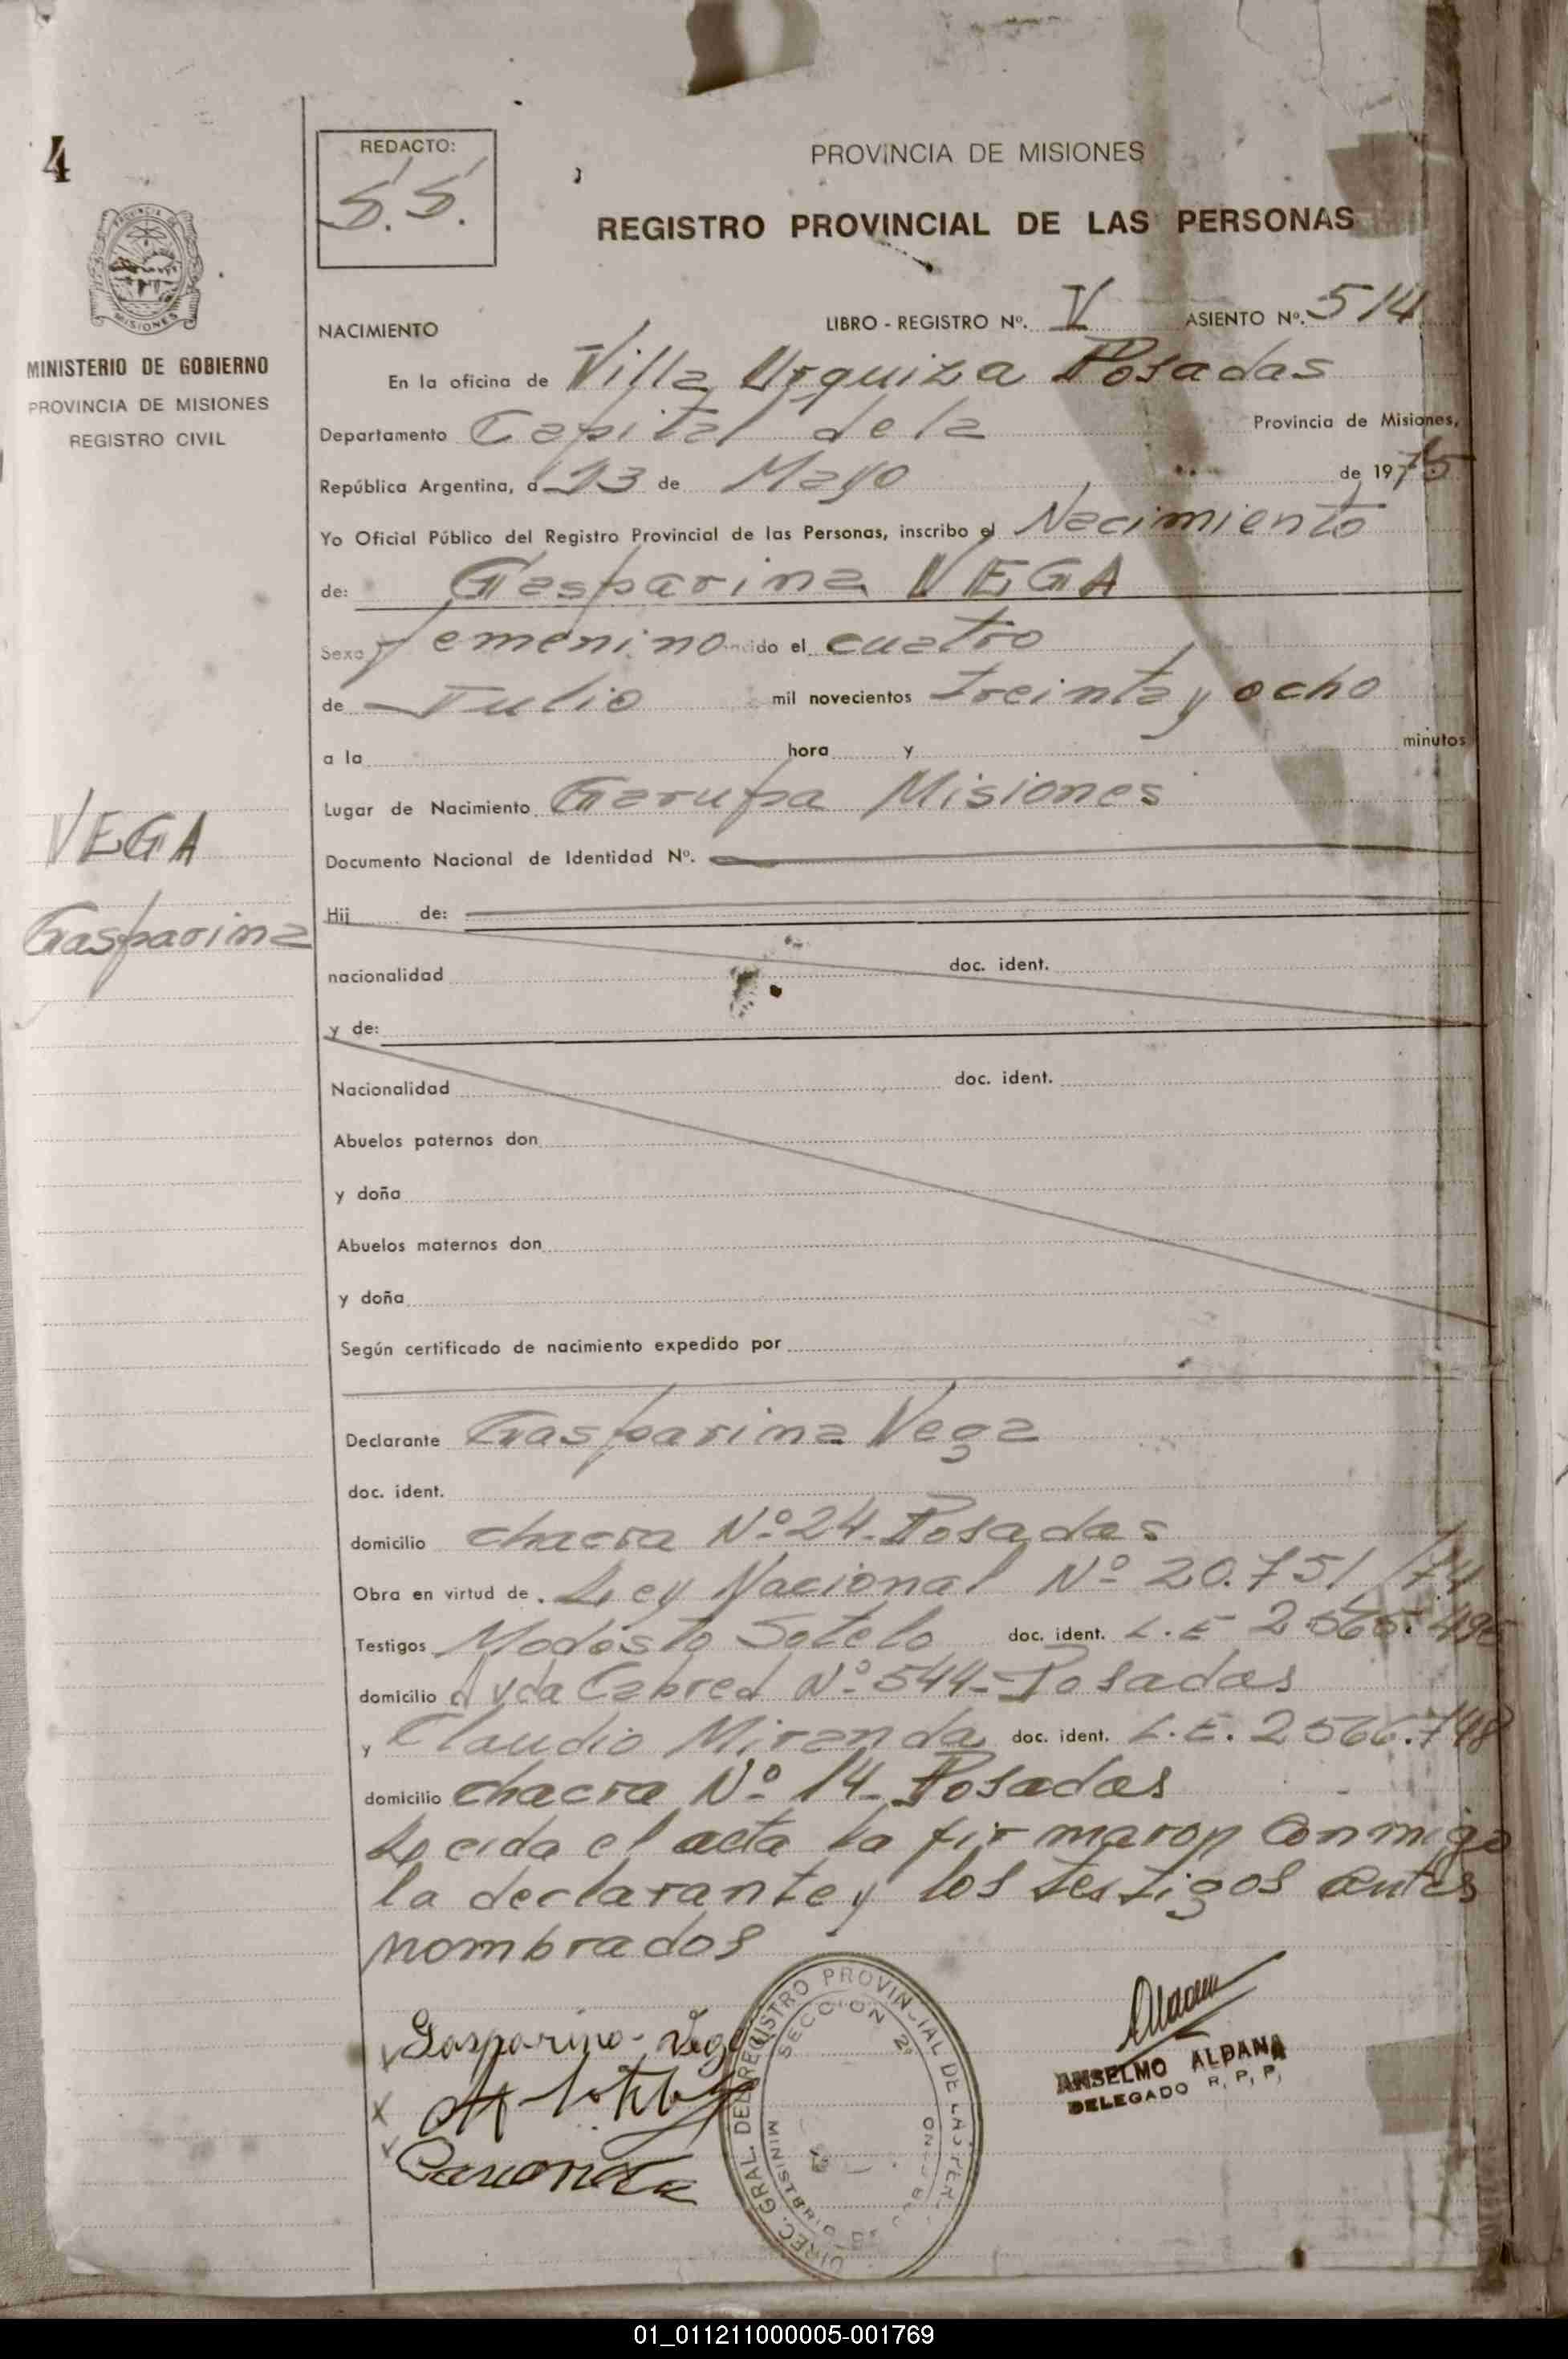 4
REDACTO:
S.S.
PROVINCIA DE MISIONES
REGISTRO PROVINCIAL DE LAS PERSONAS
MISIONES
MINISTERIO DE GOBIERNO
PROVINCIA DE MISIONES
REGISTRO CIVIL
NACIMIENTO LIBRO - REGISTRO Nº. V ASIENTO Nº. 514
En la oficina de Villa Urquiza Posadas
Departamento Capital de la Provincia de Misiones,
República Argentina, a 13 de Mayo de 1975
Yo Oficial Público del Registro Provincial de las Personas, inscribo el Nacimiento
de: Gasparina VEGA
Sexo femenino nacido el cuatro
de Julio mil novecientos treinta y ocho
a la hora y minutos
Lugar de Nacimiento Garupa Misiones
VEGA
Gasparina
Documento Nacional de Identidad Nº.
Hij de:
nacionalidad doc. ident.
y de:
Nacionalidad doc. ident.
Abuelos paternos don
y doña
Abuelos maternos don
y doña
Según certificado de nacimiento expedido por
Declarante Gasparina Vega
doc. ident.
domicilio chacra Nº 24- Posadas
Obra en virtud de. Ley Nacional Nº 20.751/74
Testigos Modesto Sotelo doc. ident. L.E 2.565.496
domicilio Avda Cabred Nº 544- Posadas
y Claudio Miranda doc. ident. L.E. 2566.748
domicilio chacra Nº 14- Posadas
Leida el acta la firmaron conmigo
la declarante y los testigos antes
nombrados
Gasparina Vega
DIREC. GRAL. DEL REGISTRO PROVINCIAL DE LAS PER.
SECCION 2ª
MINISTERIO DE
ANSELMO ALDANA
DELEGADO R. P. P.
01_011211000005-001769